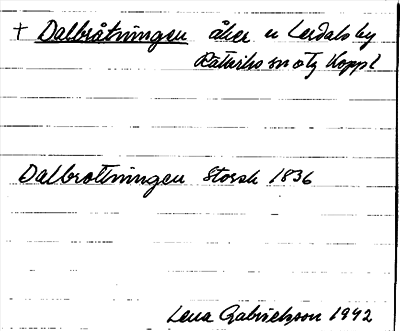 + Dalbråtningen åker u Lerdals by
Rättviks sn o tg Koppl
Dalbrottningen Storsk 1836
Lena Gabrielsson 1942